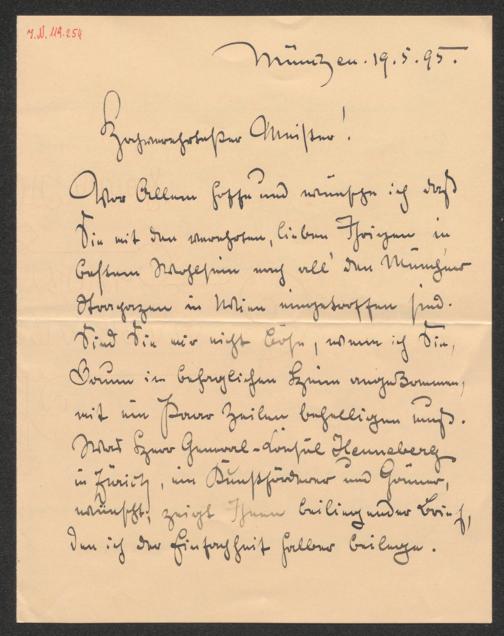 J.N. 119.254
München. 19. 5. 95.
Hochverehrtester Meister!
Vor Allem hoffe und wünsche ich daß
Sie mit den verehrten, lieben Ihrigen in
bestem Wohlsein nach all' den Münch'ner
Strapazen in Wien eingetroffen sind.
Sind Sie mir nicht böse, wenn ich Sie,
kaum im behaglichen Heim angekommen,
mit ein Paar Zeilen behelligen muß.
Was Herr General-Consul Henneberg
in Zürich, ein Kunstförderer und Gönner,
wünscht, zeigt Ihnen beiliegender Brief,
den ich der Einfachheit halber beilege.